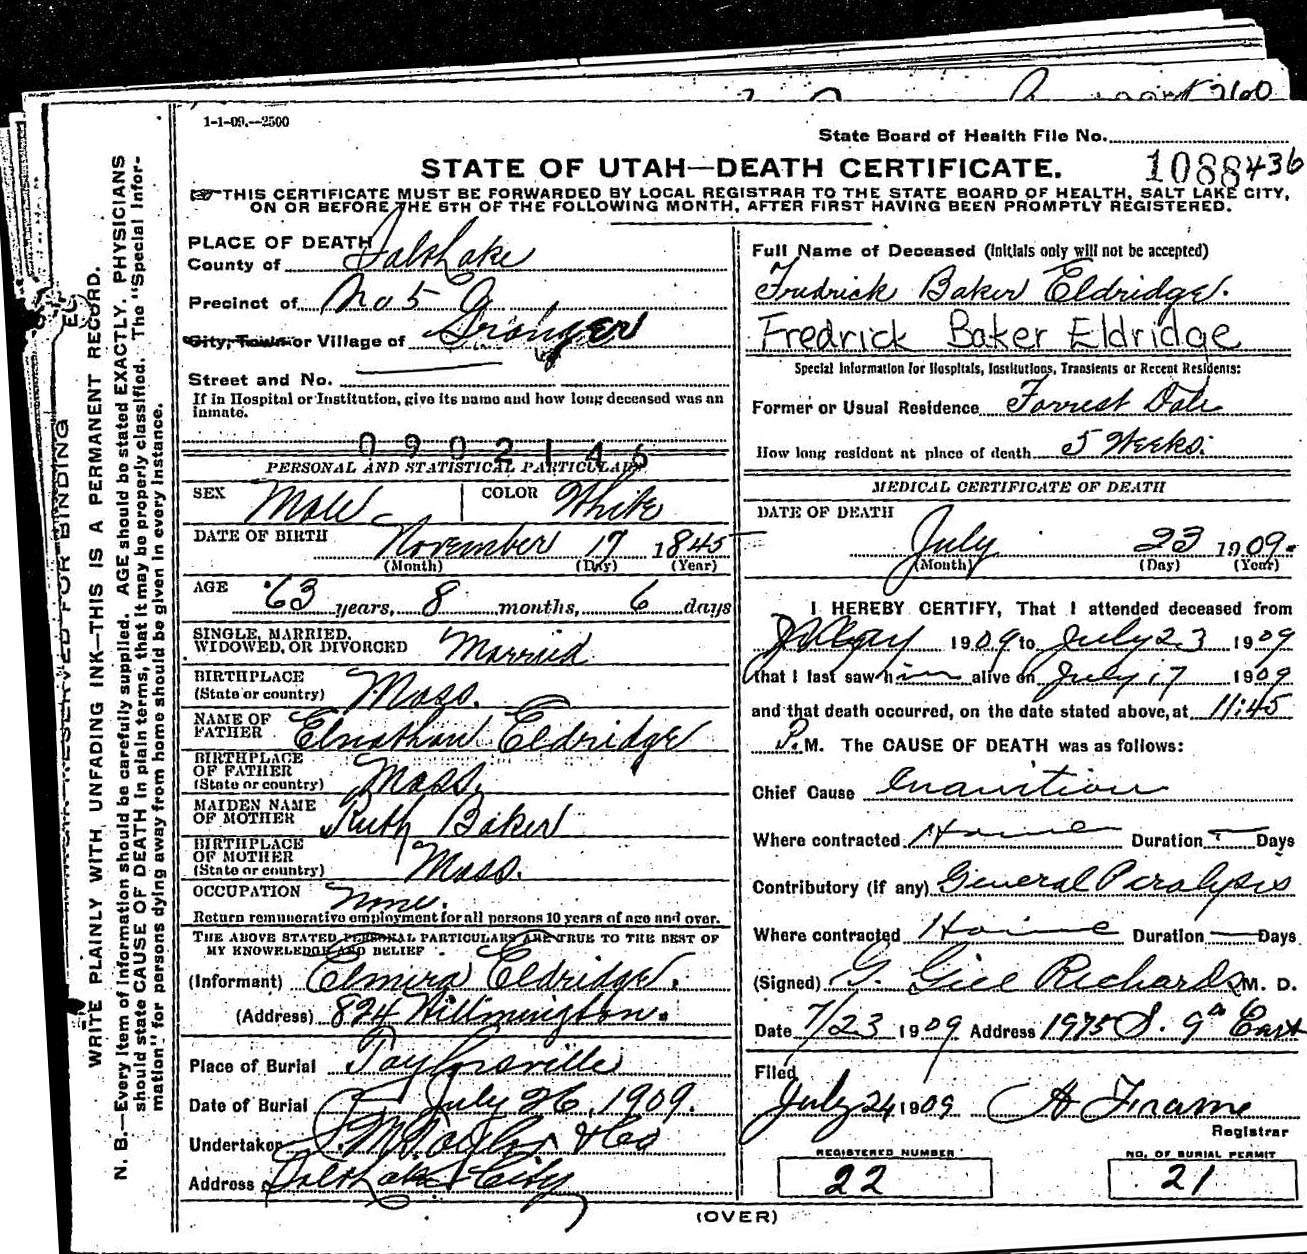 1-1-09.—2500
State Board of Health File No.
STATE OF UTAH—DEATH CERTIFICATE.
1088436
THIS CERTIFICATE MUST BE FORWARDED BY LOCAL REGISTRAR TO THE STATE BOARD OF HEALTH, SALT LAKE CITY,
ON OR BEFORE THE 5TH OF THE FOLLOWING MONTH, AFTER FIRST HAVING BEEN PROMPTLY REGISTERED.
RESERVED FOR BINDING
WRITE PLAINLY WITH UNFADING INK—THIS IS A PERMANENT RECORD.
N. B.—Every item of information should be carefully supplied. AGE should be stated EXACTLY. PHYSICIANS
should state CAUSE OF DEATH in plain terms, that it may be properly classified. The "Special Infor-
mation" for persons dying away from home should be given in every instance.
PLACE OF DEATH
County of Salt Lake
Precinct of No 5
City, Town or Village of Granger
Street and No.
If in Hospital or Institution, give its name and how long deceased was an
inmate.
0902146
PERSONAL AND STATISTICAL PARTICULARS
SEX Male COLOR White
DATE OF BIRTH November 17 1845
(Month) (Day) (Year)
AGE 63 years, 8 months, 6 days
SINGLE, MARRIED,
WIDOWED, OR DIVORCED Married
BIRTHPLACE
(State or country) Mass.
NAME OF
FATHER Elnathan Eldridge
BIRTHPLACE
OF FATHER
(State or country) Mass.
MAIDEN NAME
OF MOTHER Ruth Baker
BIRTHPLACE
OF MOTHER
(State or country) Mass.
OCCUPATION None.
Return remunerative employment for all persons 10 years of age and over.
THE ABOVE STATED PERSONAL PARTICULARS ARE TRUE TO THE BEST OF
MY KNOWLEDGE AND BELIEF
(Informant) Elmira Eldridge.
(Address) 824 Willmington.
Place of Burial Taylorsville
Date of Burial July 26, 1909.
Undertaker S. M. Taylor & Co
Address Salt Lake City
Full Name of Deceased (initials only will not be accepted)
Fredrick Baker Eldridge.
Fredrick Baker Eldridge
Special Information for Hospitals, Institutions, Transients or Recent Residents:
Former or Usual Residence Forrest Dale
How long resident at place of death 5 Weeks.
MEDICAL CERTIFICATE OF DEATH
DATE OF DEATH
July 23 1909.
(Month) (Day) (Year)
I HEREBY CERTIFY, That I attended deceased from
1909 to July 23 1909
that I last saw him alive on July 17 1909
and that death occurred, on the date stated above, at 11:45
P. M. The CAUSE OF DEATH was as follows:
Chief Cause Inanition
Where contracted Home Duration — Days
Contributory (if any) General Paralysis
Where contracted Home Duration — Days
(Signed) G. Gill Richards M. D.
Date 7/23 1909 Address 1975 S. 9th East
Filed
July 24 1909 H Frame
Registrar
REGISTERED NUMBER
22
NO. OF BURIAL PERMIT
21
(OVER)